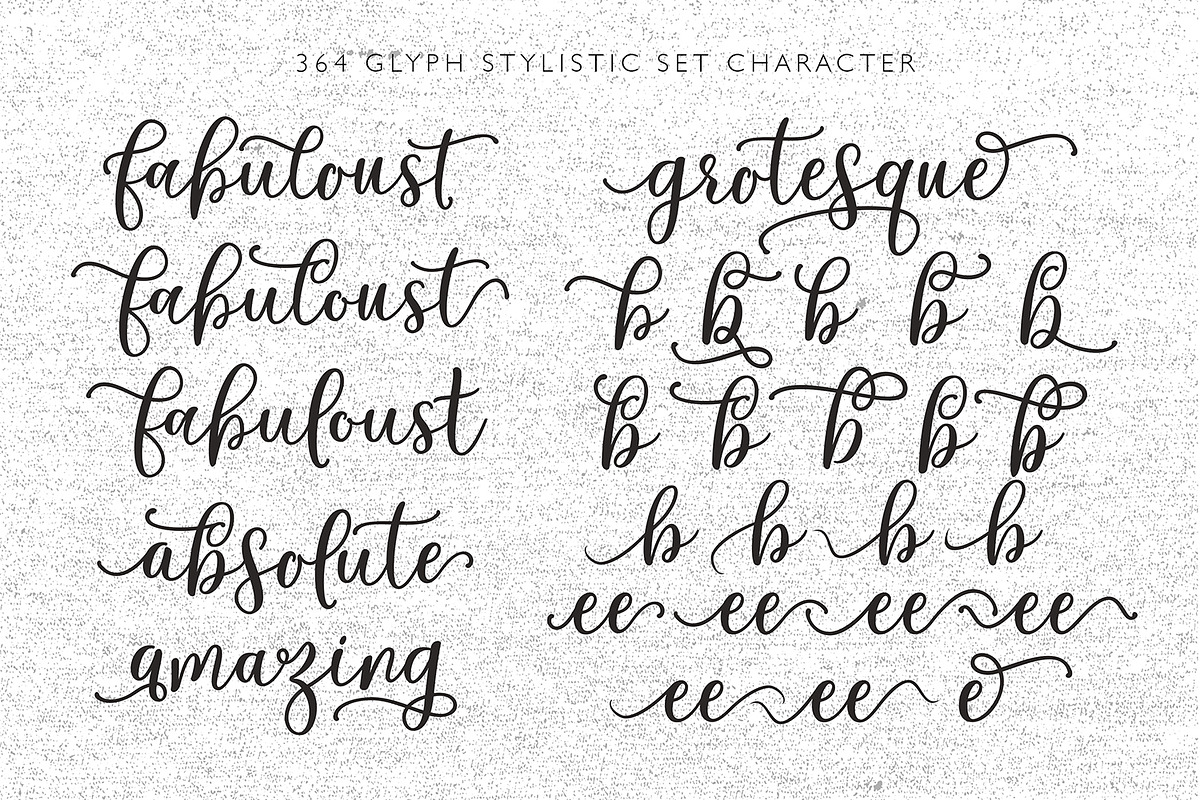 364 GLYPH STYLISTIC SET CHARACTER
fabuloust
fabuloust
fabuloust
absolute
amazing
grotesque
b b b b b
b b b b b
b b b b
ee ee ee ee
ee ee e